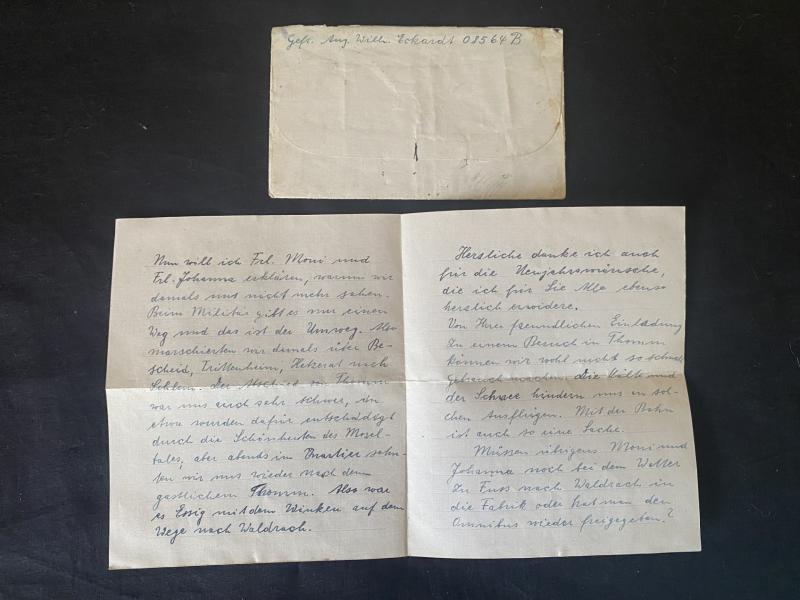 Gefr. Aug. Wilh. Eckardt 08564 B
Nun will ich Frl. Moni und
Frl. Johanna erklären, warum wir
damals uns nicht mehr sahen.
Beim Militär gibt es nur einen
Weg und das ist der Umweg. Also
marschierten wir damals über Be-
scheid, Trittenheim, Hetzerat nach
Der Abschied von Thomm
war uns auch sehr schwer, in
etwa wurden dafür entschädigt
durch die Schönheiten des Mosel-
tales, aber abends im Quartier sehn-
ten wir uns wieder nach dem
gastlichem Thomm. Also war
es Essig mit dem Winken auf dem
Wege nach Waldrach.
Herzliche danke ich auch
für die Neujahrswünsche,
die ich für Sie Alle ebenso
herzlich erwidere.
Von Ihrer freundlichen Einladung
zu einem Besuch in Thomm
können wir wohl nicht so schnell
Gebrauch machen. Die Kälte und
der Schnee hindern uns an sol-
chen Ausflügen. Mit der Bahn
ist auch so eine Sache.
Müssen übrigens Moni und
Johanna noch bei dem Wetter
zu Fuss nach Waldrach in
die Fabrik oder hat man den
Omnibus wieder freigegeben?